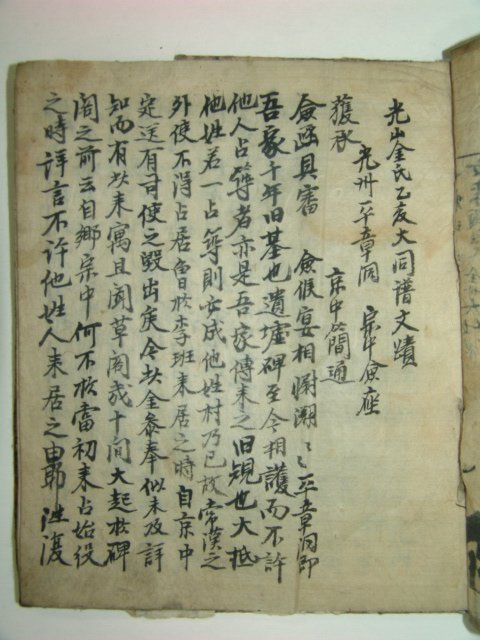 光山金氏乙亥大同譜文蹟
光州平章洞 宗中僉座
京中簡通
獲承
僉函具審 僉候宴相慰溯〻平章洞即
吾家千年旧基也遺墟碑至今相護而不許
他人占葬者亦是吾家傳来之旧規也大抵
他姓若一占葬則必成他姓村乃已故常漢之
外使不得占居曾於李班来居之時自京中
定送有司使之毀出矣今於金參奉似未及詳
知而有此来寓且聞草閣幾十間大起於碑
閣之前云自鄉宗中何不於當初来占始役
之時詳言不許他姓人来居之由耶 往復